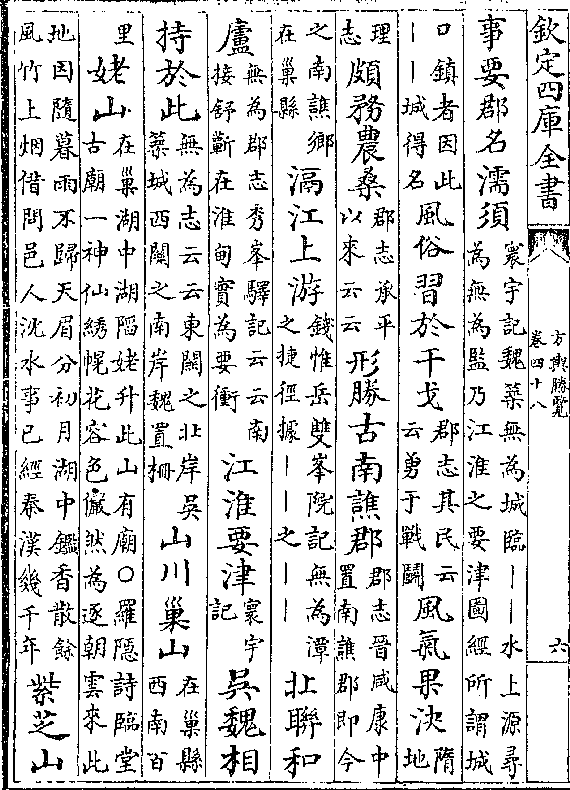 欽定四庫全書
方輿勝覽
卷四十八
六
事要郡名濡須寰宇記魏築無為城臨丨丨水上源尋
為無為監乃江淮之要津圖經所謂城
口鎮者因此
丨丨城得名風俗習於干戈郡志其民云
云勇于戰鬬風氣果決隋
地
理
志頗務農桑郡志承平
以來云云形勝古南譙郡郡志晉咸康中
置南譙郡即今
之南譙鄉
在巢縣滆江上游錢惟岳雙峯院記無為潭
之捷徑據丨丨之丨丨北聯和
廬無為郡志秀峯驛記云云南
接舒蘄在淮甸實為要衝江淮要津寰宇
記吳魏相
持於此無為志云云東關之北岸吳
築城西關之南岸魏置柵山川巢山在巢縣
西南百
里姥山在巢湖中湖陷姥升此山有廟○羅隱詩臨堂
古廟一神仙綉幌花容色儼然為逐朝雲來此
地因隨暮雨不歸天眉分初月湖中鑑香散餘
風竹上烟借問邑人沈水事已經秦漢幾千年紫芝山